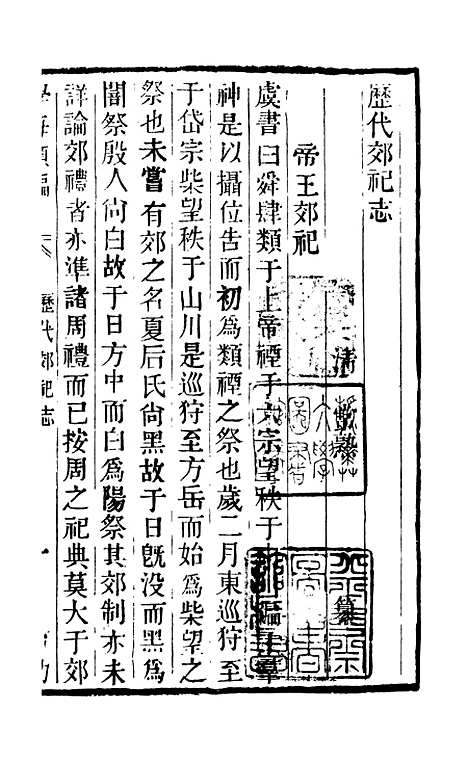 歷代郊祀志
清　　　　纂
帝王郊祀
虞書曰舜肆類于上帝禋于六宗望秩于
神是以攝位告而初為類禋之祭也歲二月東巡狩至
于岱宗柴望秩于山川是巡狩至方岳而始為柴望之
祭也未嘗有郊之名夏后氏尙黑故于日旣没而黑為
闇祭殷人尙白故于日方中而白為陽祭其郊制亦未
詳論郊禮者亦準諸周禮而已按周之祀典莫大于郊
歷代郊祀志　一